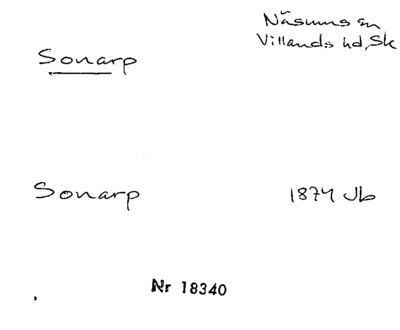 Näsums sn
Villands hd, Sk
Sonarp
Sonarp 1874 Jb
Nr 18340